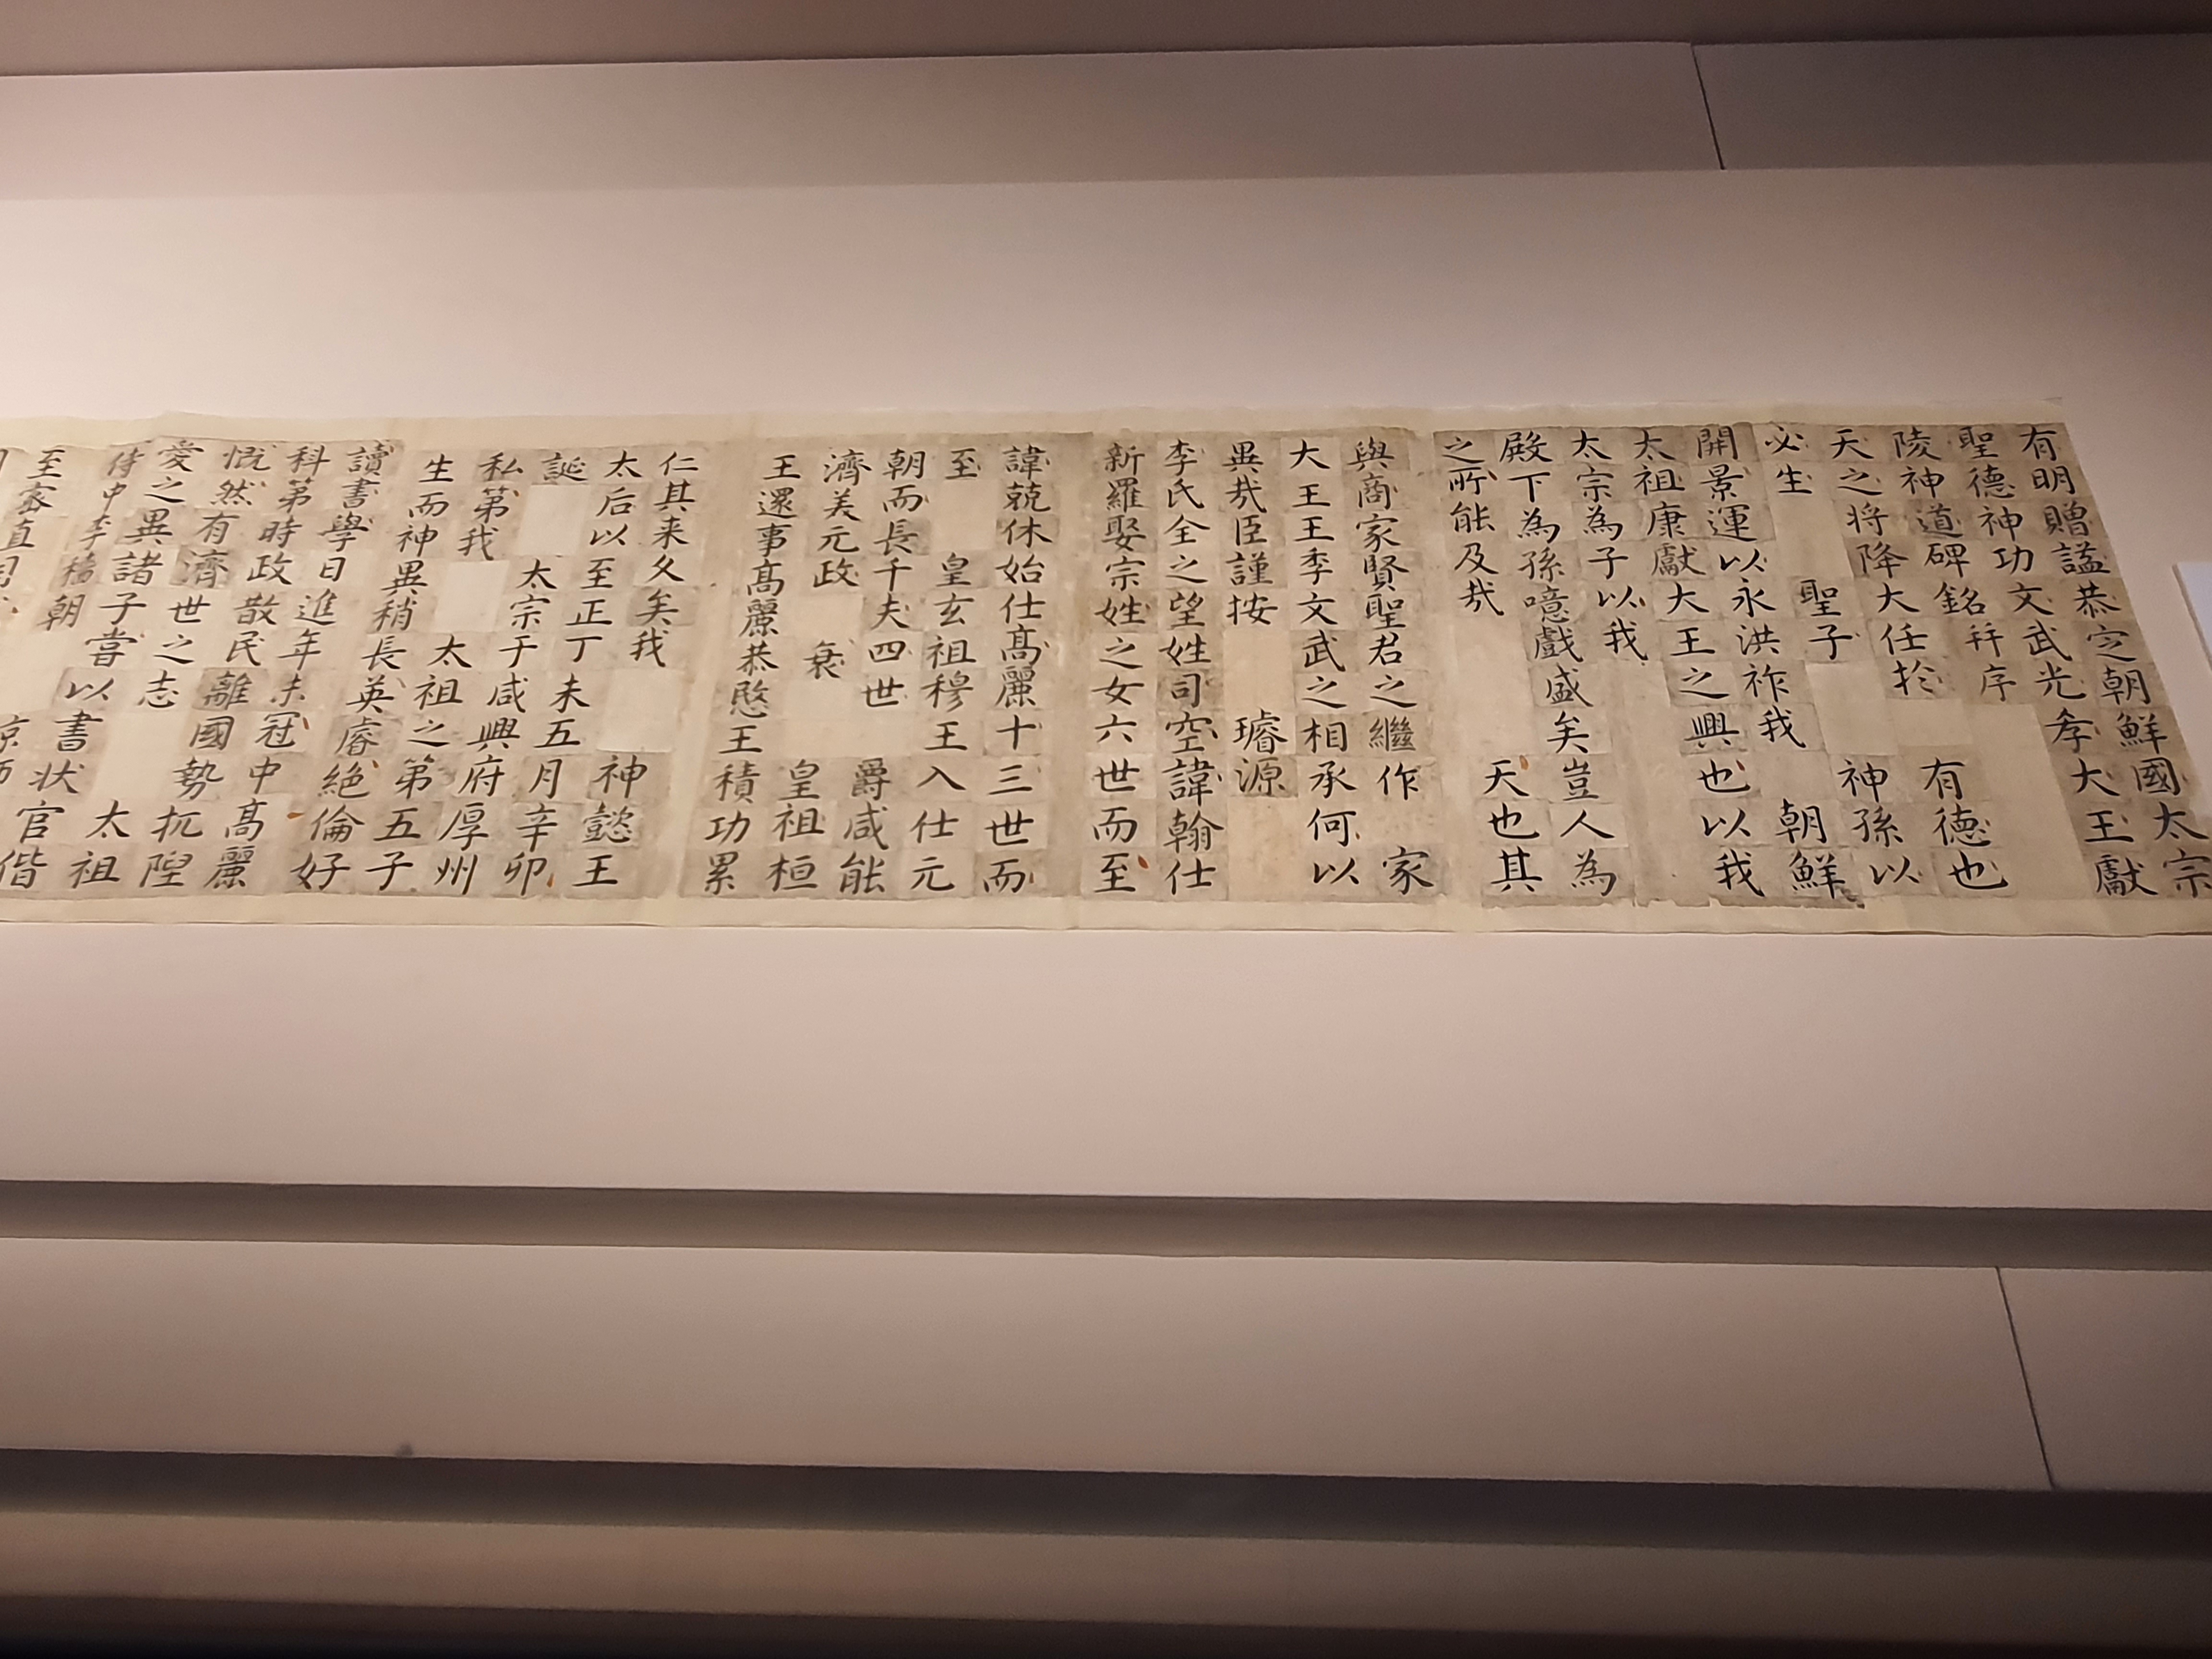 有明贈諡恭定朝鮮國太宗
聖德神功文武光孝大王獻
陵神道碑銘幷序
天之将降大任扵 有德也
必生 聖子 神孫以
開景運以永洪祚我 朝鮮
太祖康獻大王之興也以我
太宗為子以我
殿下為孫噫戲盛矣豈人為
之所能及㢤 天也其
與商家賢聖君之繼作 家
大王王季文武之相承何以
異㢤臣謹按 璿源
李氏全之望姓司空諱翰仕
新羅娶宗姓之女六世而至
諱兢休始仕髙麗十三世而
至 皇玄祖穆王入仕元
朝而長千夫四世 爵咸能
濟美元政 衰 皇祖桓
王還事髙麗恭愍王積功累
仁其来久矣我 神懿王
太后以至正丁未五月辛卯
誕 太宗于咸興府厚州
私第我 太祖之第五子
生而神異稍長英睿絕倫好
讀書學日進年未冠中髙麗
科第時政散民離國勢抗隉
慨然有濟世之志 太祖
愛之異諸子嘗以書状官偕
侍中李穡朝 京師
至密直司